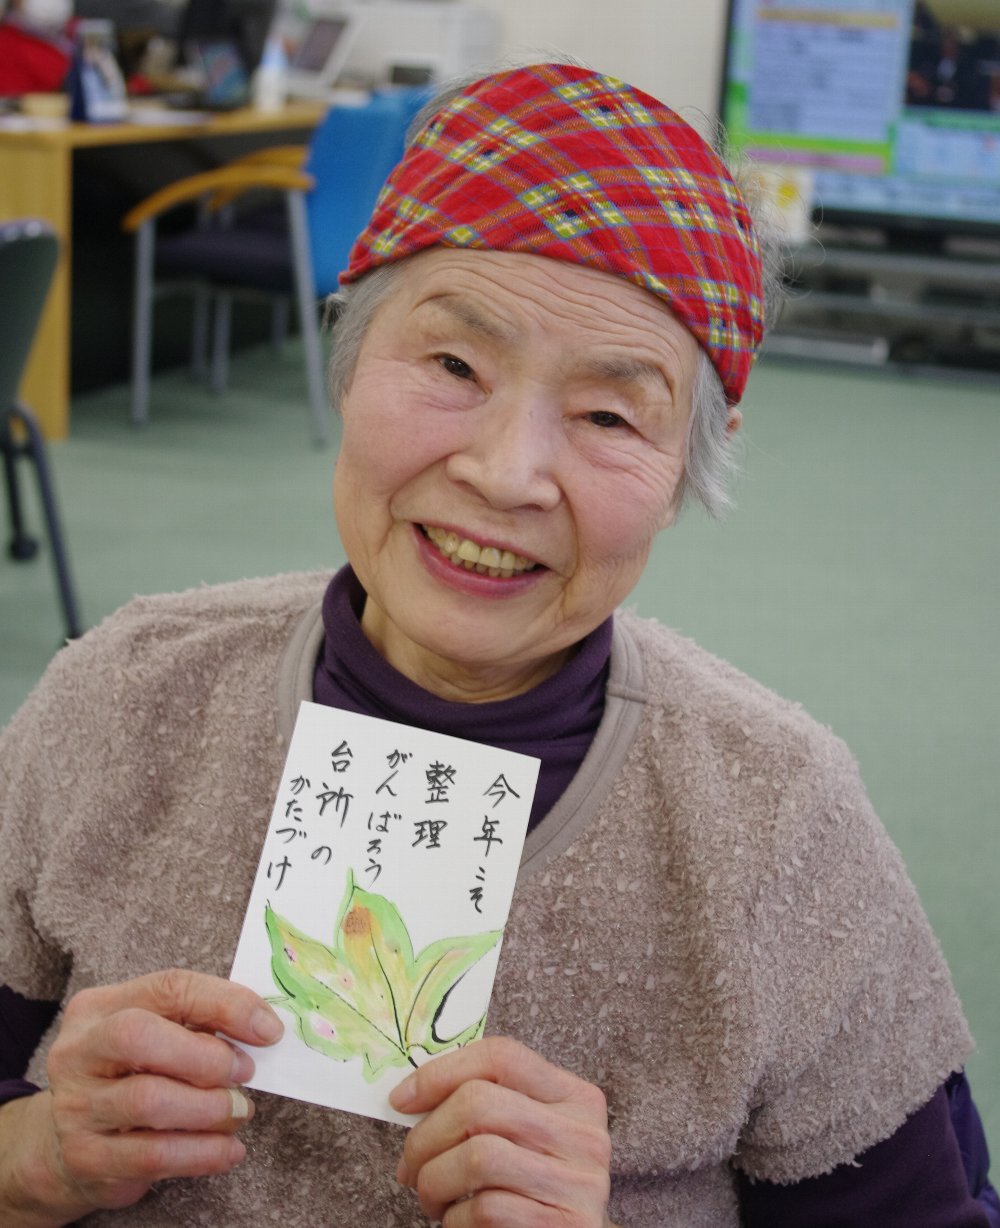 今年こそ
整理
がんばろう
台所の
かたづけ